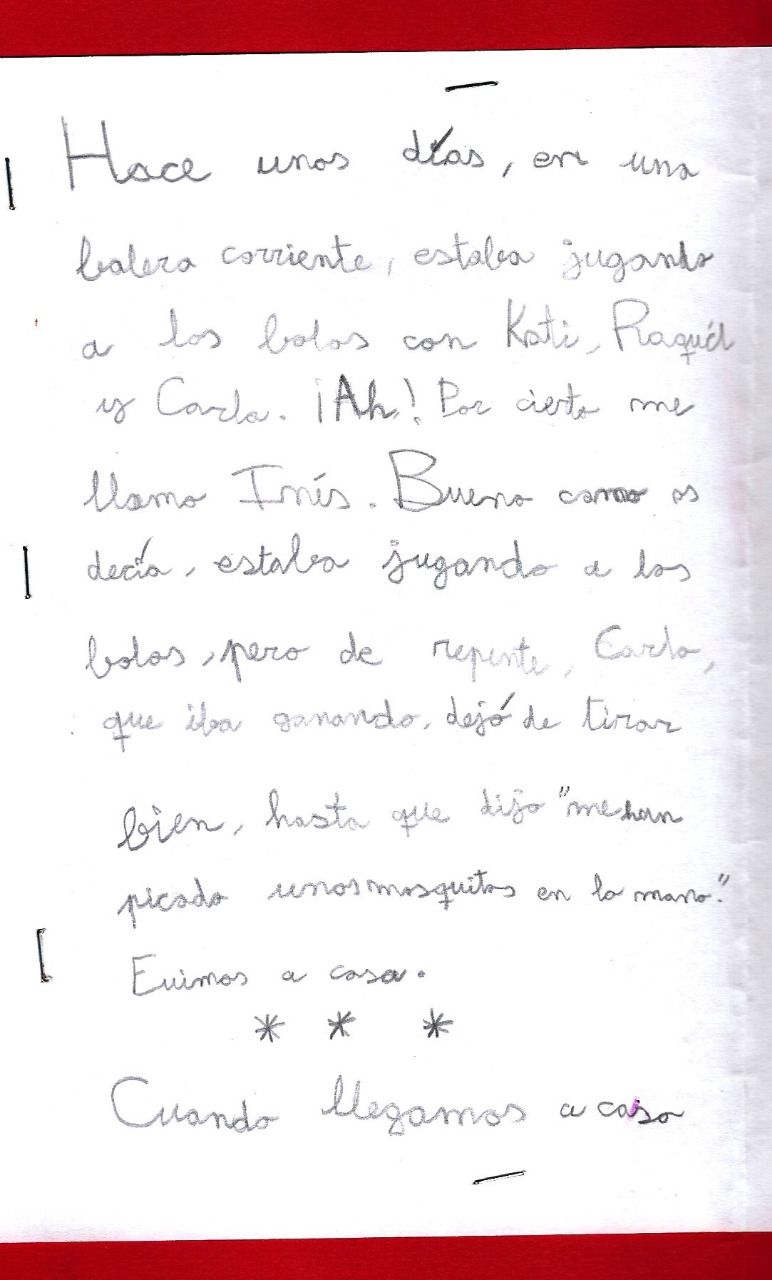 Hace unos días, en una
bolera corriente, estaba jugando
a los bolos con Kati, Raquél
y Carla. ¡Ah! Por cierto me
llamo Inés. Bueno como os
decía, estaba jugando a los
bolos, pero de repente, Carla,
que iba ganando, dejó de tirar
bien, hasta que dijo "me han
picado unos mosquitos en la mano."
Fuimos a casa.
* * *
Cuando llegamos a casa